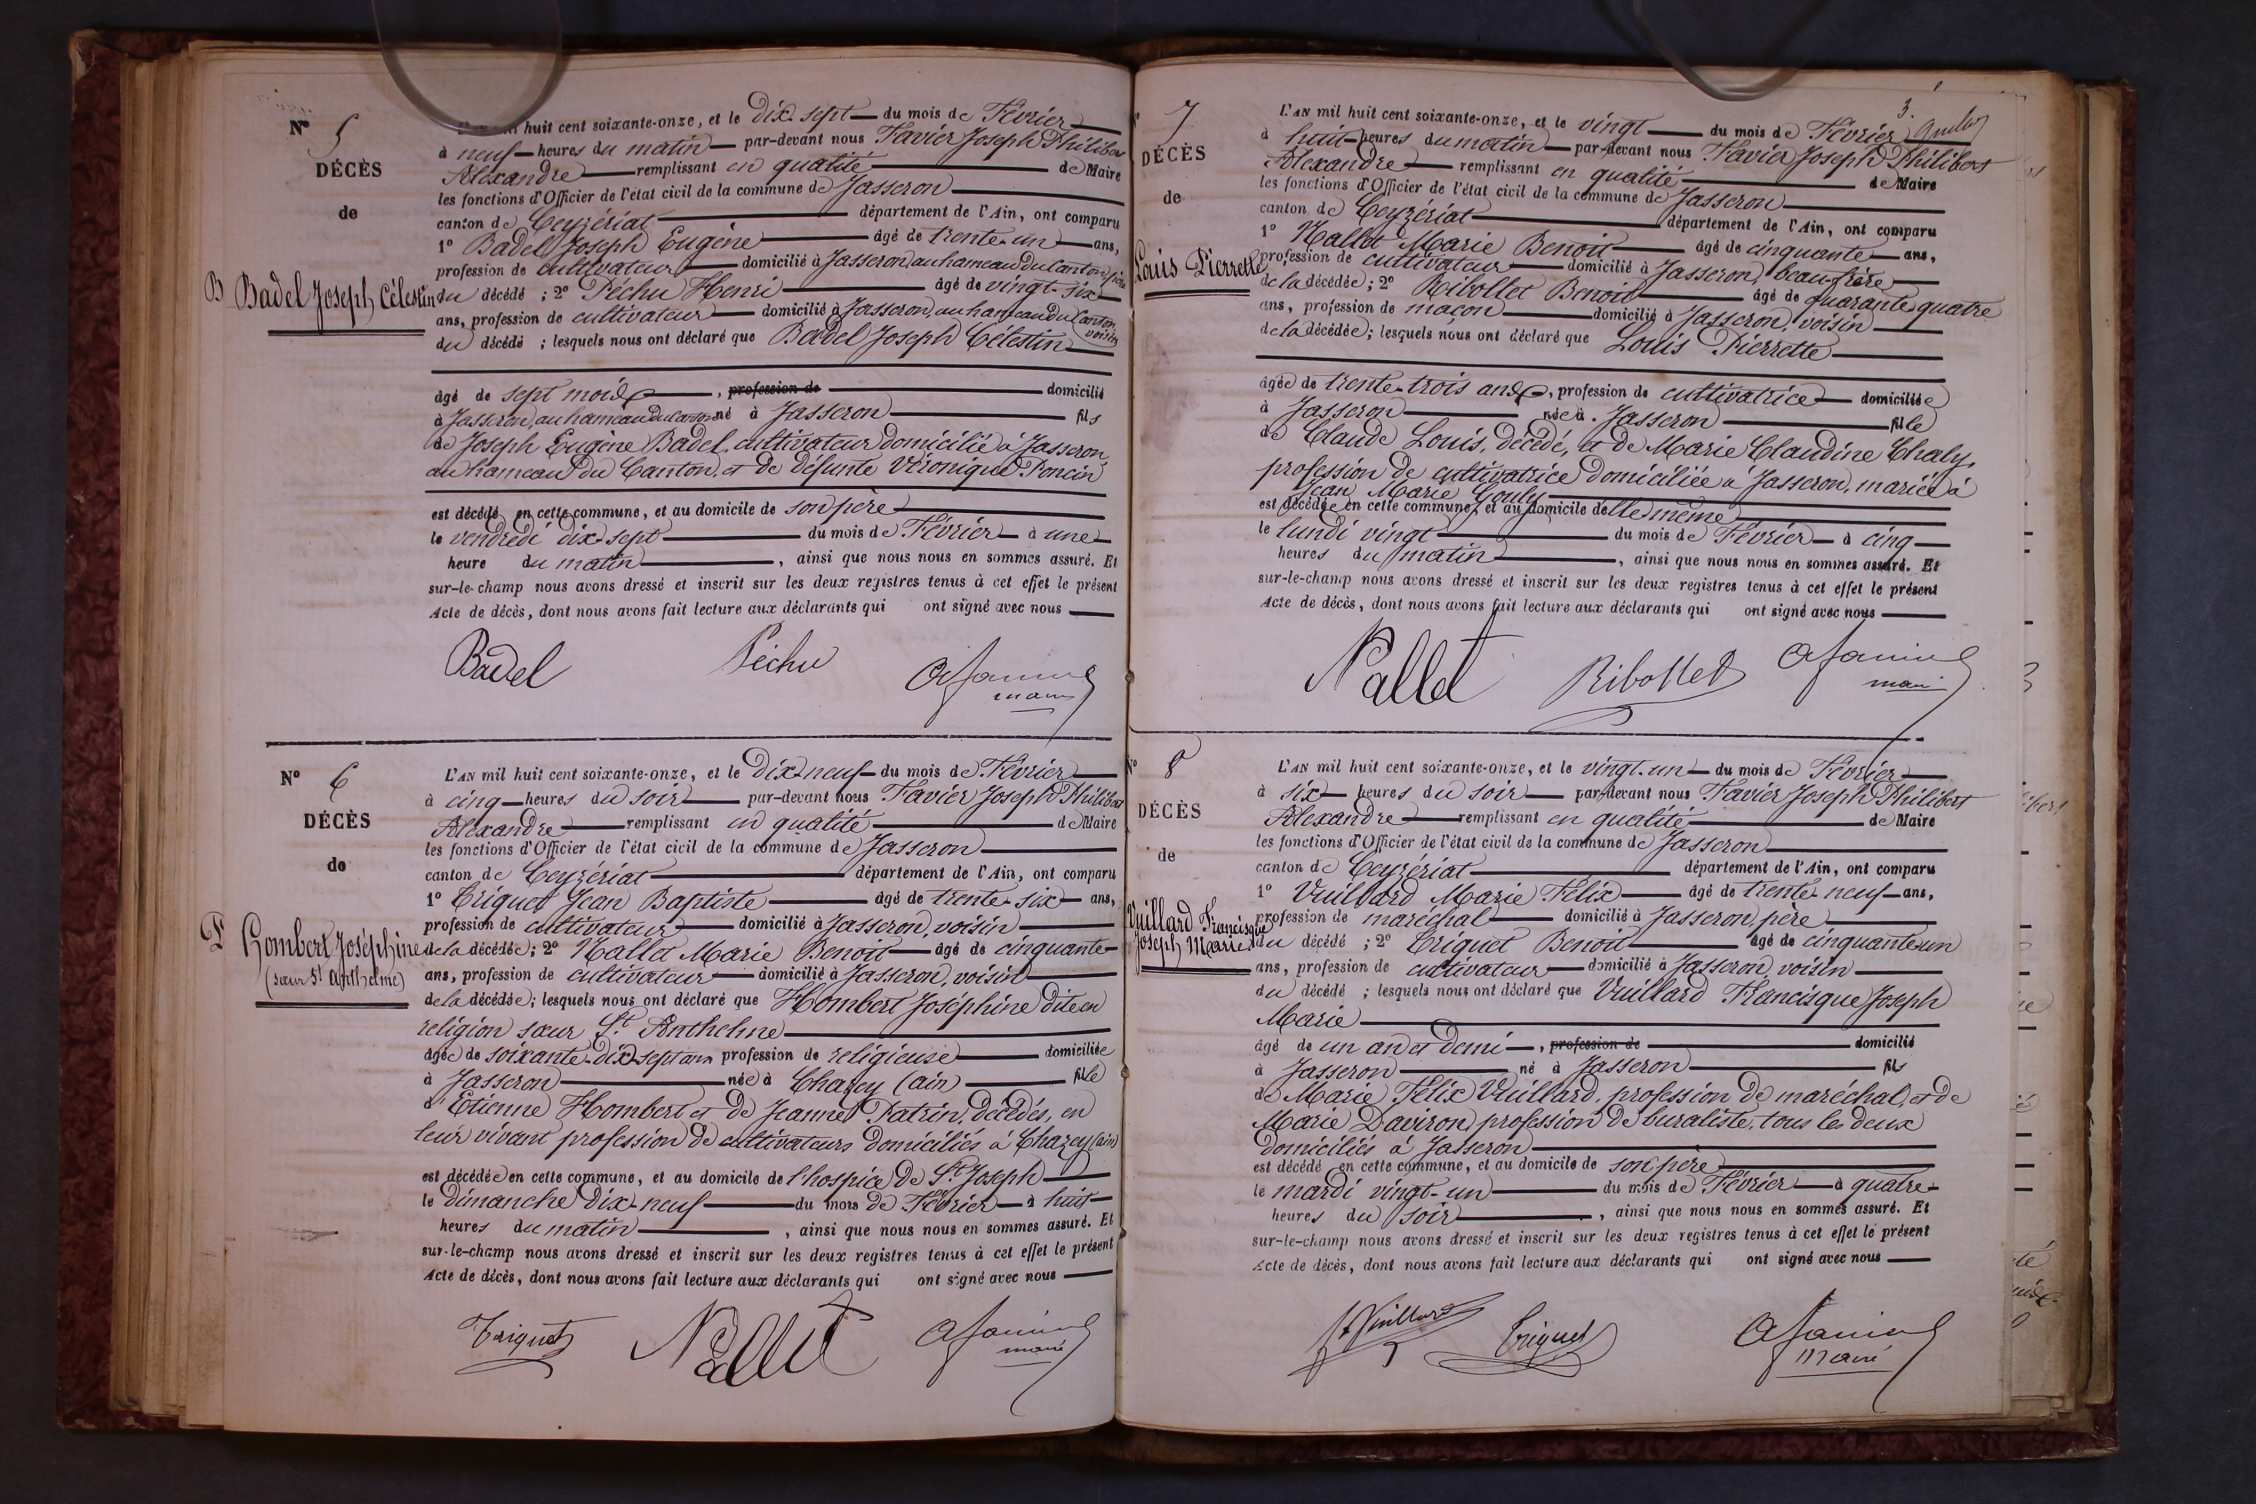 N° 5
DÉCÈS
de
B Badel Joseph Célestin
L'AN mil huit cent soixante-onze, et le dix-sept du mois de Février
à neuf heures du matin par-devant nous Favier Joseph Philibert
Alexandre remplissant en qualité de Maire
les fonctions d'Officier de l'état civil de la commune de Jasseron
canton de Ceyzériat département de l'Ain, ont comparu
1° Badel Joseph Eugène âgé de trente-un ans,
profession de cultivateur domicilié à Jasseron, au hameau du Canton, père
du décédé ; 2° Péchu Henri âgé de vingt-six
ans, profession de cultivateur domicilié à Jasseron, au hameau du Canton, voisin
du décédé ; lesquels nous ont déclaré que Badel Joseph Célestin
âgé de sept mois , profession de domicilié
à Jasseron, au hameau du Canton né à Jasseron fils
de Joseph Eugène Badel, cultivateur domicilié à Jasseron,
au hameau du Canton, et de défunte Véronique Poncin
est décédé en cette commune, et au domicile de son père
le vendredi dix-sept du mois de Février à une
heure du matin , ainsi que nous nous en sommes assuré. Et
sur-le-champ nous avons dressé et inscrit sur les deux registres tenus à cet effet le présent
Acte de décès, dont nous avons fait lecture aux déclarants qui ont signé avec nous
Badel Péchu A favier
maire
N° 6
DÉCÈS
de
Hombert Joséphine
(sœur St Anthelme)
L'AN mil huit cent soixante-onze, et le Dix-neuf du mois de Février
à cinq heures du soir par-devant nous Favier Joseph Philibert
Alexandre remplissant en qualité de Maire
les fonctions d'Officier de l'état civil de la commune de Jasseron
canton de Ceyzériat département de l'Ain, ont comparu
1° Criquet Jean Baptiste âgé de trente-six ans,
profession de cultivateur domicilié à Jasseron, voisin
de la décédée ; 2° Nallet Marie Benoit âgé de cinquante
ans, profession de cultivateur domicilié à Jasseron, voisin
de la décédée ; lesquels nous ont déclaré que Hombert Joséphine dite en
religion sœur St Anthelme
âgée de soixante-dix-sept ans profession de religieuse domiciliée
à Jasseron née à Chazey (ain) fille
d'Etienne Hombert et de Jeanne Patrin, décédés, en
leur vivant profession de cultivateurs domiciliés à Chazey (ain)
est décédée en cette commune, et au domicile de l'hospice de St Joseph
le dimanche dix-neuf du mois de Février à huit
heures du matin , ainsi que nous nous en sommes assuré. Et
sur-le-champ nous avons dressé et inscrit sur les deux registres tenus à cet effet le présent
Acte de décès, dont nous avons fait lecture aux déclarants qui ont signé avec nous
Criquet Nallet A favier
maire
3.
N° 7
DÉCÈS
de
Louis Pierrette
L'AN mil huit cent soixante-onze, et le vingt du mois de Février
à huit heures du matin par-devant nous Favier Joseph Philibert
Alexandre remplissant en qualité de Maire
les fonctions d'Officier de l'état civil de la commune de Jasseron
canton de Ceyzériat département de l'Ain, ont comparu
1° Nallet Marie Benoit âgé de cinquante ans,
profession de cultivateur domicilié à Jasseron, beau-frère
de la décédée ; 2° Ribollet Benoit âgé de quarante-quatre
ans, profession de maçon domicilié à Jasseron, voisin
de la décédée ; lesquels nous ont déclaré que Louis Pierrette
âgée de trente-trois ans , profession de cultivatrice domiciliée
à Jasseron née à Jasseron fille
de Claude Louis, décédé, et de Marie Claudine Chaly,
profession de cultivatrice domiciliée à Jasseron, mariée à
Jean Marie Gouly
est décédée en cette commune, et au domicile d'elle même
le lundi vingt du mois de Février à cinq
heures du matin , ainsi que nous nous en sommes assuré. Et
sur-le-champ nous avons dressé et inscrit sur les deux registres tenus à cet effet le présent
Acte de décès, dont nous avons fait lecture aux déclarants qui ont signé avec nous
Nallet Ribollet A favier
maire
N° 8
DÉCÈS
de
Vuillard Francisque
Joseph Marie
L'AN mil huit cent soixante-onze, et le vingt-un du mois de Février
à six heures du soir par-devant nous Favier Joseph Philibert
Alexandre remplissant en qualité de Maire
les fonctions d'Officier de l'état civil de la commune de Jasseron
canton de Ceyzériat département de l'Ain, ont comparu
1° Vuillard Marie Félix âgé de trente-neuf ans,
profession de maréchal domicilié à Jasseron, père
du décédé ; 2° Criquet Benoit âgé de cinquante-un
ans, profession de cultivateur domicilié à Jasseron, voisin
du décédé ; lesquels nous ont déclaré que Vuillard Francisque Joseph
Marie
âgé de un an et demi , profession de domicilié
à Jasseron né à Jasseron fils
de Marie Félix Vuillard, profession de maréchal, et de
Marie Daviron, profession de buraliste, tous les deux
domiciliés à Jasseron
est décédé en cette commune, et au domicile de son père
le mardi vingt-un du mois de Février à quatre
heures du soir , ainsi que nous nous en sommes assuré. Et
sur-le-champ nous avons dressé et inscrit sur les deux registres tenus à cet effet le présent
Acte de décès, dont nous avons fait lecture aux déclarants qui ont signé avec nous
Vuillard Criquet A favier
maire